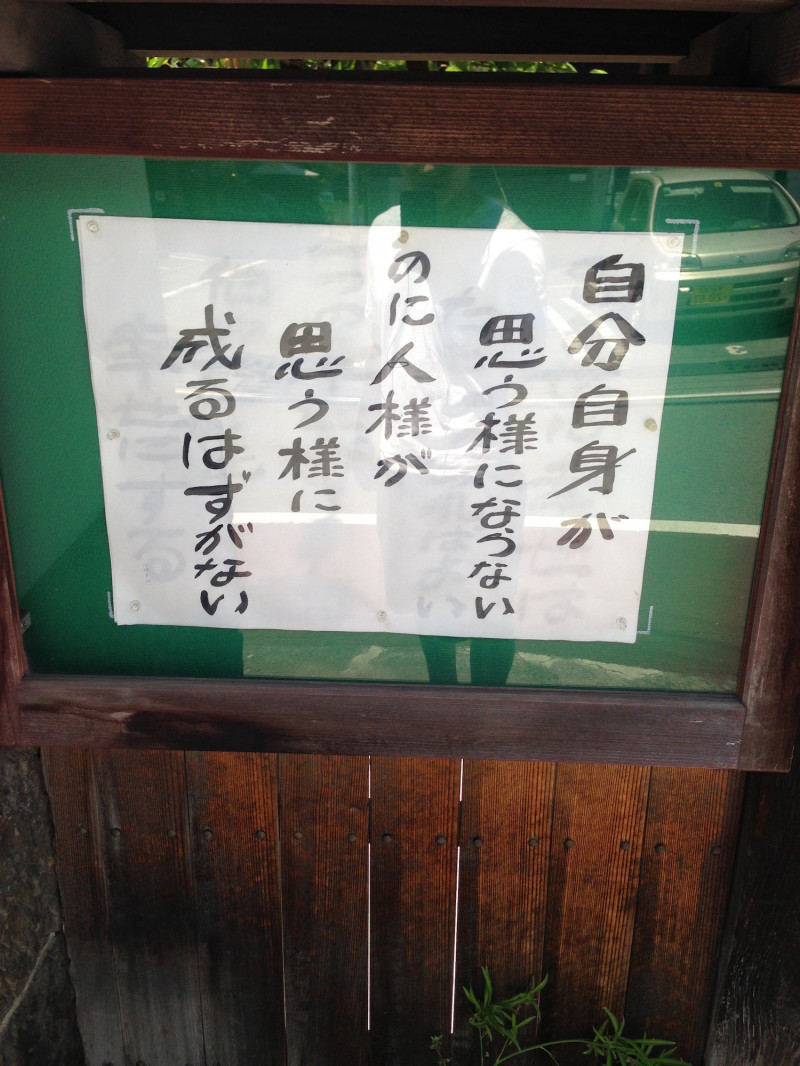 自分自身が
思う様にならない
のに人様が
思う様に
成るはずがない